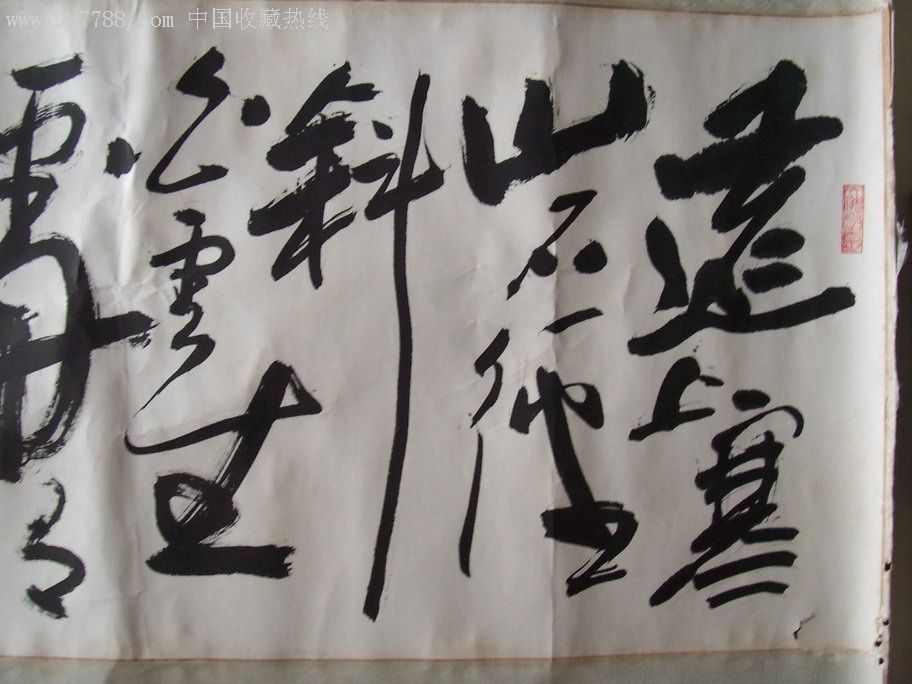 www.997788.com 中国收藏热线
遠上寒
山石徑
斜
白雲生
處